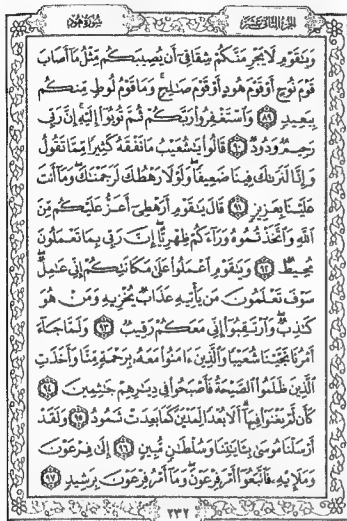 الجزء الثاني عشر
سورة هود
وَيَٰقَوْمِ لَا يَجْرِمَنَّكُمْ شِقَاقِىٓ أَن يُصِيبَكُم مِّثْلُ مَآ أَصَابَ
قَوْمَ نُوحٍ أَوْ قَوْمَ هُودٍ أَوْ قَوْمَ صَٰلِحٍ وَمَا قَوْمُ لُوطٍ مِّنكُم
بِبَعِيدٍ ٨٩ وَٱسْتَغْفِرُوا۟ رَبَّكُمْ ثُمَّ تُوبُوٓا۟ إِلَيْهِ إِنَّ رَبِّى
رَحِيمٌ وَدُودٌ ٩٠ قَالُوا۟ يَٰشُعَيْبُ مَا نَفْقَهُ كَثِيرًا مِّمَّا تَقُولُ
وَإِنَّا لَنَرَىٰكَ فِينَا ضَعِيفًا وَلَوْلَا رَهْطُكَ لَرَجَمْنَٰكَ وَمَآ أَنتَ
عَلَيْنَا بِعَزِيزٍ ٩١ قَالَ يَٰقَوْمِ أَرَهْطِىٓ أَعَزُّ عَلَيْكُم مِّنَ
ٱللَّهِ وَٱتَّخَذْتُمُوهُ وَرَآءَكُمْ ظِهْرِيًّا إِنَّ رَبِّى بِمَا تَعْمَلُونَ
مُحِيطٌ ٩٢ وَيَٰقَوْمِ ٱعْمَلُوا۟ عَلَىٰ مَكَانَتِكُمْ إِنِّى عَٰمِلٌ
سَوْفَ تَعْلَمُونَ مَن يَأْتِيهِ عَذَابٌ يُخْزِيهِ وَمَنْ هُوَ
كَٰذِبٌ وَٱرْتَقِبُوٓا۟ إِنِّى مَعَكُمْ رَقِيبٌ ٩٣ وَلَمَّا جَآءَ
أَمْرُنَا نَجَّيْنَا شُعَيْبًا وَٱلَّذِينَ ءَامَنُوا۟ مَعَهُۥ بِرَحْمَةٍ مِّنَّا وَأَخَذَتِ
ٱلَّذِينَ ظَلَمُوا۟ ٱلصَّيْحَةُ فَأَصْبَحُوا۟ فِى دِيَٰرِهِمْ جَٰثِمِينَ ٩٤
كَأَن لَّمْ يَغْنَوْا۟ فِيهَآ أَلَا بُعْدًا لِّمَدْيَنَ كَمَا بَعِدَتْ ثَمُودُ ٩٥ وَلَقَدْ
أَرْسَلْنَا مُوسَىٰ بِـَٔايَٰتِنَا وَسُلْطَٰنٍ مُّبِينٍ ٩٦ إِلَىٰ فِرْعَوْنَ
وَمَلَإِي۟هِۦ فَٱتَّبَعُوٓا۟ أَمْرَ فِرْعَوْنَ وَمَآ أَمْرُ فِرْعَوْنَ بِرَشِيدٍ ٩٧
٢٣٢